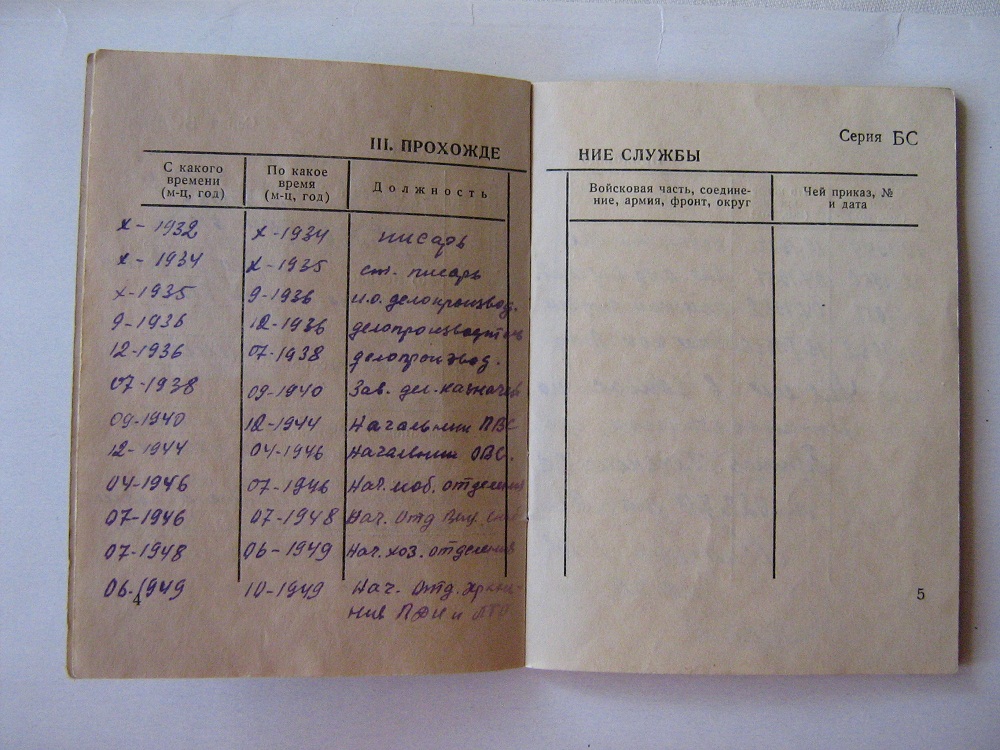 III. ПРОХОЖДЕ
С какого времени (м-ц, год)
По какое время (м-ц, год)
Должность
X-1932 X-1934 писарь
X-1934 X-1935 ст. писарь
X-1935 9-1936 и.о. делопроизвод.
9-1936 12-1936 делопроизводитель
12-1936 07-1938 делопроизвод.
07-1938 09-1940 Зав. дел-казначей
09-1940 12-1944 Начальник ПВС
12-1944 04-1946 Начальник ОВС.
04-1946 07-1946 Нач. моб. отделения
07-1946 07-1948 Нач. Отд
07-1948 06-1949 Нач. хоз. отделения
06-1949 10-1949 Нач. Отд. хране-
ния и
4
Серия БС
НИЕ СЛУЖБЫ
Войсковая часть, соедине-
ние, армия, фронт, округ
Чей приказ, №
и дата
5